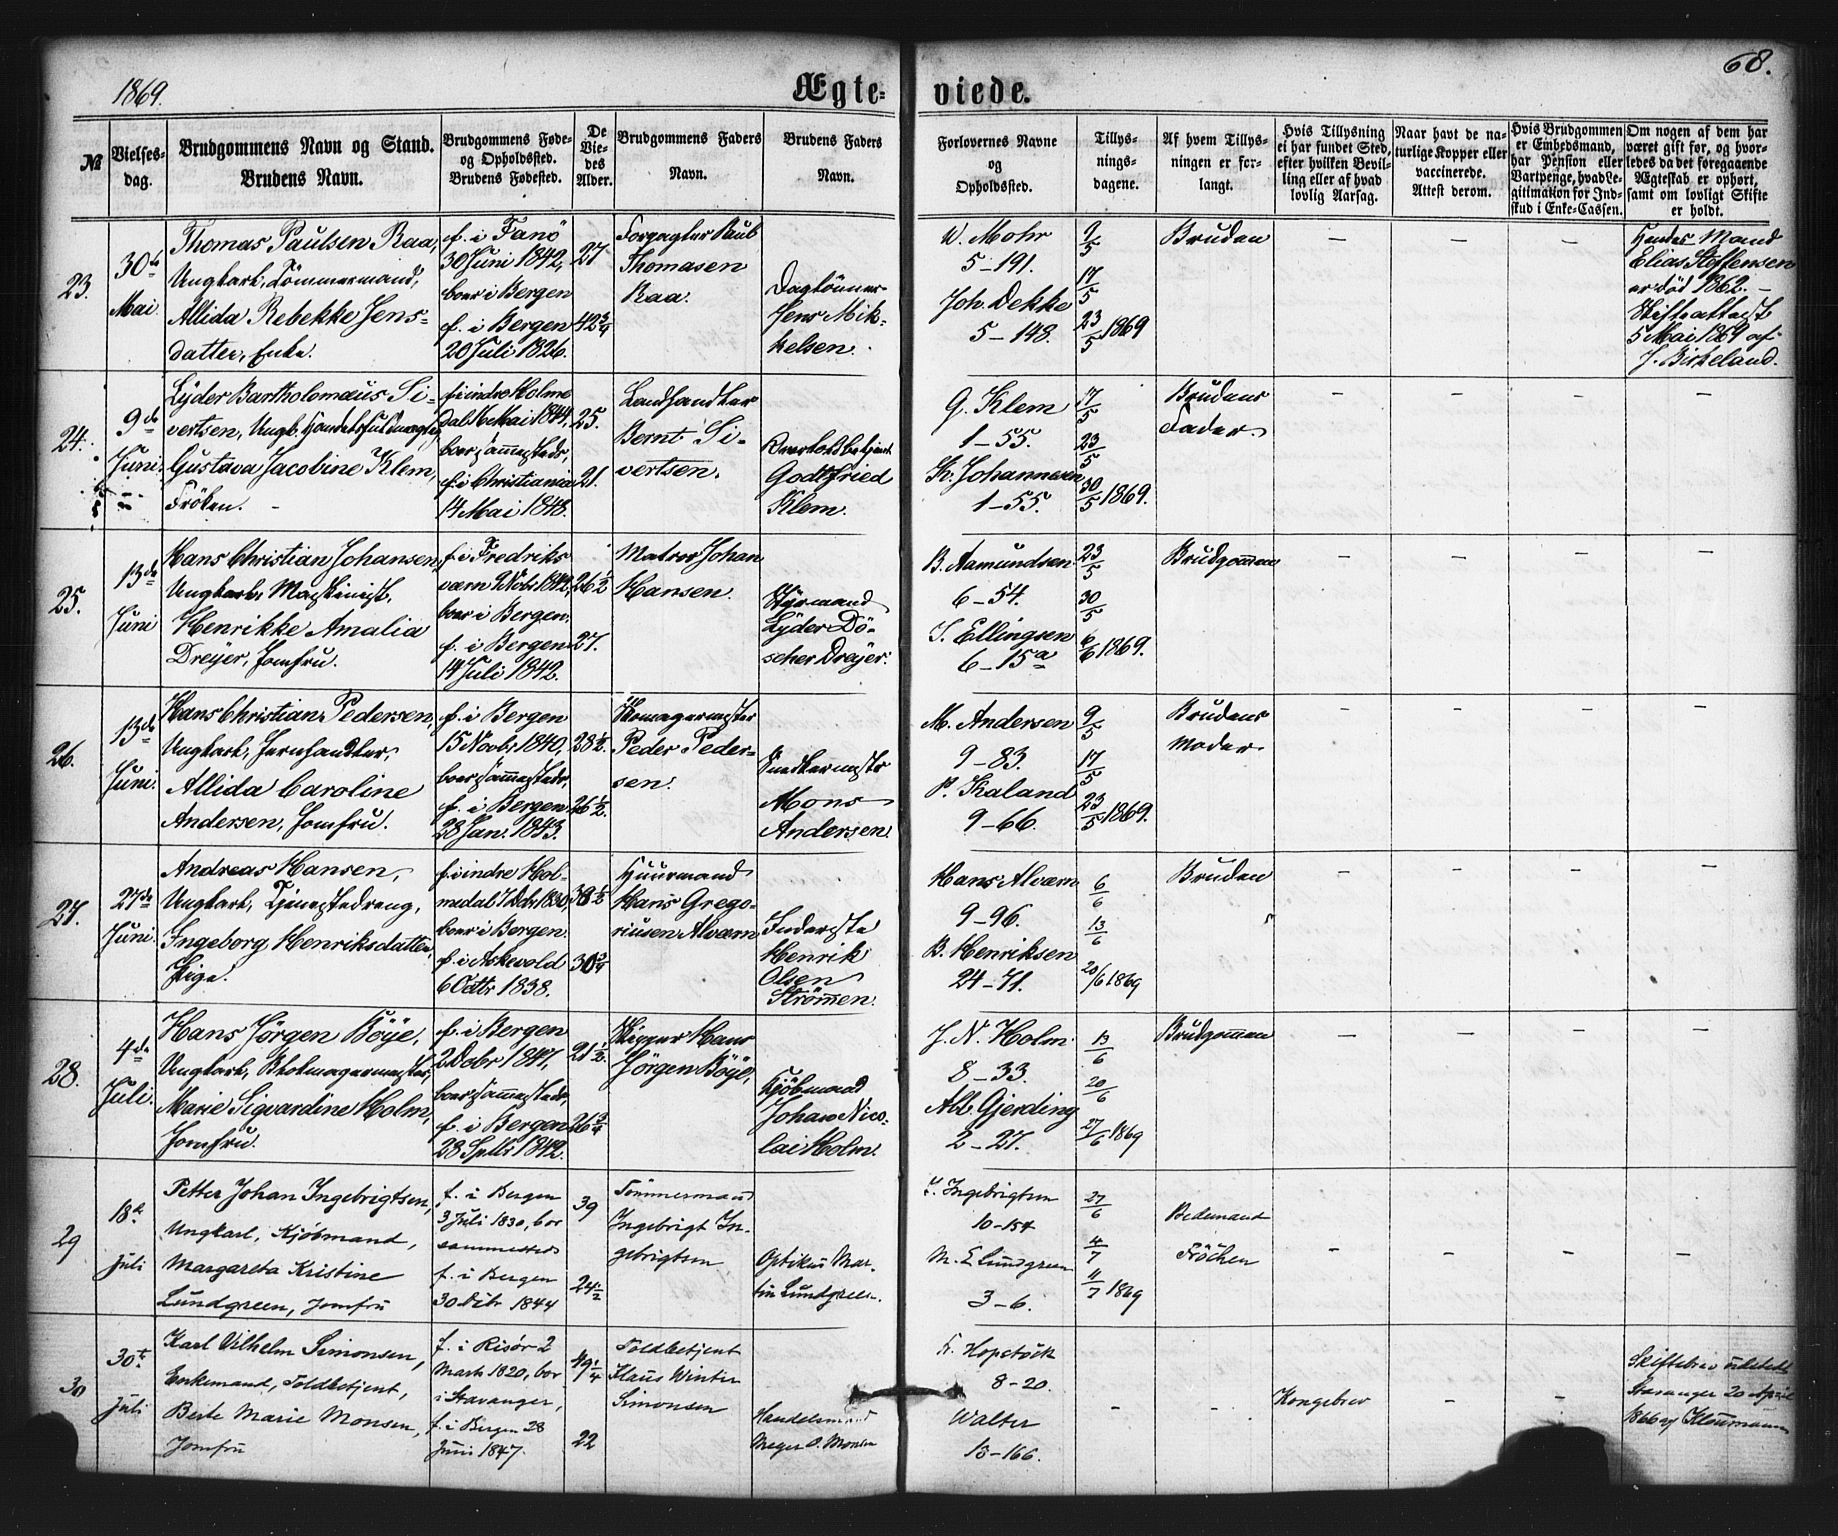 1869.
Ægte-
viede.
68.
№
Vielses-
dag.
Brudgommens Navn og Stand.
Brudens Navn.
Brudgommens Føde-
og Opholdssted.
Brudens Fødested.
De
Vie-
des
Alder.
Brudgommens Faders
Navn.
Brudens Faders
Navn.
Forlovernes Navne
og
Opholdssted.
Tillys-
nings-
dagene.
Af hvem Tillys-
ningen er for-
langt.
Hvis Tillysning
ei har fundet Sted,
efter hvilken Bevil-
ling eller af hvad
lovlig Aarsag.
Naar havt de na-
turlige Kopper eller
vaccinerede.
Attest derom.
Hvis Brudgommen
er Embedsmand,
har Pension eller
Vartpenge, hvad Le-
gitimation for Ind-
skud i Enke-Cassen.
Om nogen af dem har
været gift før, og hvor-
ledes da det foregaaende
Ægteskab er ophørt,
samt om lovligt Skifte
er holdt.
23.
30te
Mai.
Thomas Paulsen Raa,
Ungkarl, Tömmermand,
Allida Rebekke Jens-
datter, Enke.
f. i Fanö
30 Juni 1842,
boer i Bergen
f. i Bergen
20 Juli 1826.
27
42 3/4
Forpagter Paul
Thomasen
Raa.
Daglönner
Jens Mik-
kelsen.
W. Mohr
5-191.
Joh. Dekke
5-148.
9/5
17/5
23/5 1869
Bruden
— — —
Hendes Mand
Elias Steffensen
er död 1862. —
Skifteattest
5 Mai 1869 af
J. Birkeland.
24.
9de
Juni.
Lyder Bartholomæus Si-
vertsen, Ungk. Handelsfuldmægtig,
Gustava Jacobine Klem,
Fröken. —
f. i indre Holme
dal 6 Mai 1844,
boer sammesteds,
f. i Christiania
14 Mai 1848.
25.
21.
Landhandler
Bernt Si-
vertsen.
Overtoldbetjent
Godtfried
Klem.
G. Klem
1-55.
Th. Johannesen
1-55.
17/5
23/5
30/5 1869.
Brudens
Fader.
— — — —
25.
13de
Juni
Hans Christian Johansen,
Ungkarl, Maskinist,
Henrikke Amalia
Dreyer, Jomfru.
f. i Fredriks
værn 9 Novbr 1842,
boer i Bergen,
f. i Bergen
14 Juli 1842.
26 1/2
27.
Matros Johan
Hansen.
Styrmand
Lyder Dö-
scher Dreyer.
B. Aamundsen
6-54.
S. Ellingsen
6-15a
23/5
30/5
6/6 1869.
Brudgommen
— — — —
26.
13de
Juni.
Hans Christian Pedersen,
Ungkarl, Jernhandler,
Allida Caroline
Andersen, Jomfru.
f. i Bergen
15 Novbr 1840,
boer sammesteds,
f. i Bergen
28 Jan. 1843.
28 1/2.
26 1/2.
Skomagermester
Peder Peder-
sen.
Snedkermester
Mons
Andersen.
M. Andersen
9-83.
P. Kaland
9-66.
9/5
17/5
23/5 1869.
Brudens
Moder.
— — — —
27.
27de
Juni.
Andreas Hansen,
Ungkarl, Tjenestedreng,
Ingeborg Henriksdatter,
Pige.
f. i indre Hol-
medal 7 Dcbr 1830,
boer i Bergen.
f. i Askevold
6 Octbr 1838.
38 1/2
30 3/4
Huusmand
Hans Grego-
riusen Alværn
Inderste
Henrik
Olsen
Strömmen.
Hans Alværn
9-96.
B. Henriksen
24-71.
6/6
13/6
20/6 1869
Bruden
— — — —
28.
4de
Juli.
Hans Jörgen Böye,
Ungkarl, Blokmagermester,
Marie Sigvardine Holm,
Jomfru.
f. i Bergen
2 Dcbr 1847,
boer sammesteds,
f. i Bergen
28 Septbr 1842.
21 1/2.
26 3/4
Skipper Hans
Jörgen Böye,
Kjöbmand
Johan Nico-
lai Holm.
J. N. Holm
8-33.
Alb. Gjerding
2-27.
13/6
20/6
27/6 1869
Brudgommen
— — — —
29
18de
Juli
Petter Johan Ingebrigtsen,
Ungkarl, Kjöbmand,
Margareta Kristine
Lundgreen, Jomfru
f. i Bergen
3 Juli 1830, bor
sammesteds
f. i Bergen
30 Dcbr 1844
39
24 1/2
Tömmermand
Ingebrigt In-
gebrigtsen
Optikus Mar-
tin Lundgreen.
Ingebrigtsen
10-154
M. E Lundgreen
3-6.
27/6
4/7
11/7 1869
Bedemand
Fröchen
— — — —
30
30te
Juli
Karl Vilhelm Simonsen,
Enkemand, Toldbetjent,
Berte Marie Monsen,
Jomfru
f. i Risör 2
Marts 1820, bor
i Stavanger,
f. i Bergen 28
Juni 1847.
49 1/4
22
Toldbetjent
Klaus Winter
Simonsen
Handelsmand
Meyer O. Monsen
Hopstock
8-20.
Walter
13-166.
— —
Kongebrev
— —
Skiftebrev udstedt
Stavanger 20 April
1866 af Kloumann